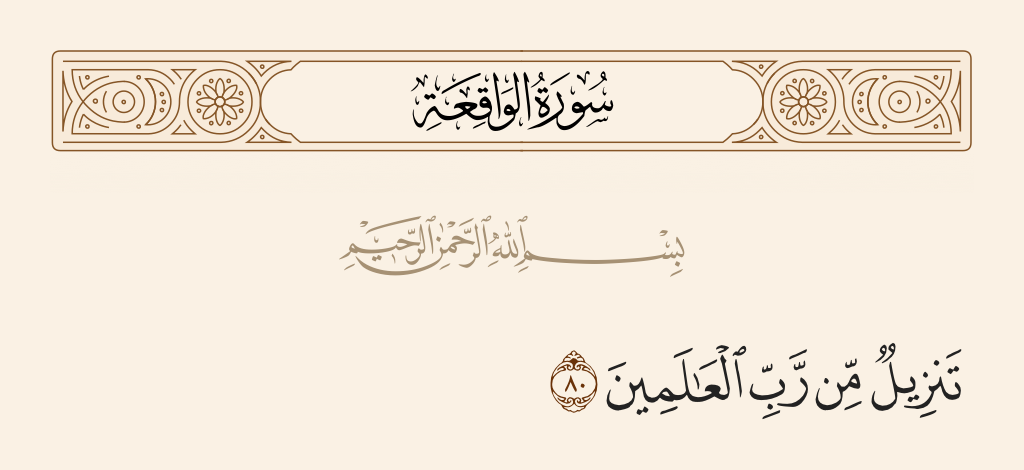 سُورَةُ الوَاقِعَةِ
بِسْمِ ٱللَّهِ ٱلرَّحْمَٰنِ ٱلرَّحِيمِ
تَنزِيلٌ مِّن رَّبِّ ٱلْعَٰلَمِينَ ٨٠